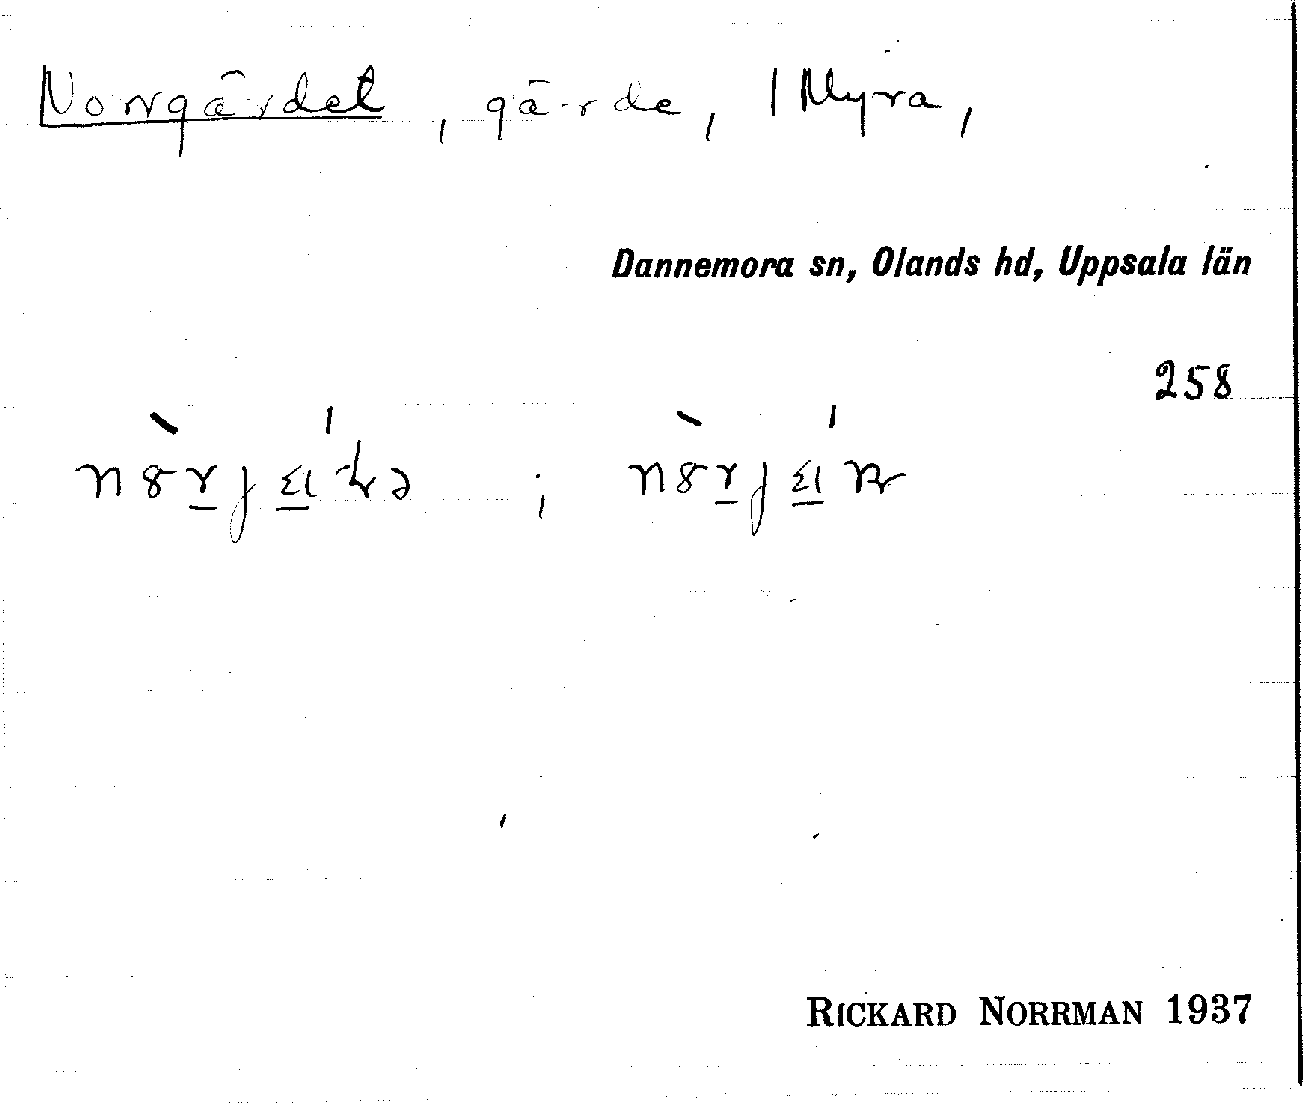 Norrgärdet, gärde, i Myra,
Dannemora sn, Olands hd, Uppsala län
258
RICKARD NORRMAN 1937